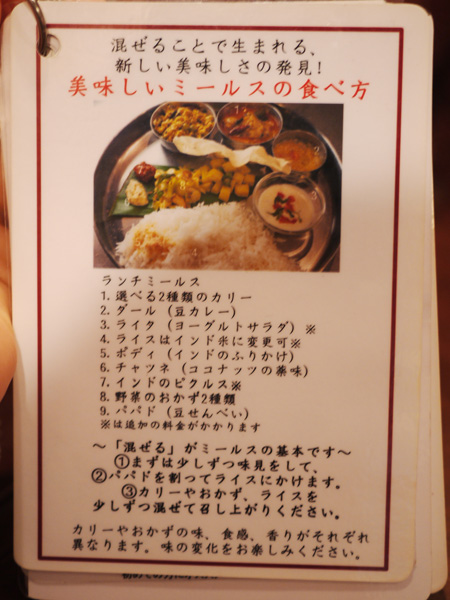 混ぜることで生まれる、
新しい美味しさの発見!
美味しいミールスの食べ方
ランチミールス
1. 選べる2種類のカリー
2. ダール（豆カレー）
3. ライタ（ヨーグルトサラダ）※
4. ライスはインド米に変更可※
5. ポディ（インドのふりかけ）
6. チャツネ（ココナッツの薬味）
7. インドのピクルス※
8. 野菜のおかず2種類
9. パパド（豆せんべい）
※は追加の料金がかかります
～「混ぜる」がミールスの基本です～
①まずは少しずつ味見をして、
②パパドを割ってライスにかけます。
③カリーやおかず、ライスを
少しずつ混ぜて召し上がりください。
カリーやおかずの味、食感、香りがそれぞれ
異なります。味の変化をお楽しみください。